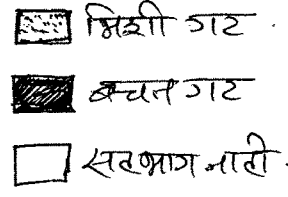 भिशी गट
बचत गट
सहभाग नाही.